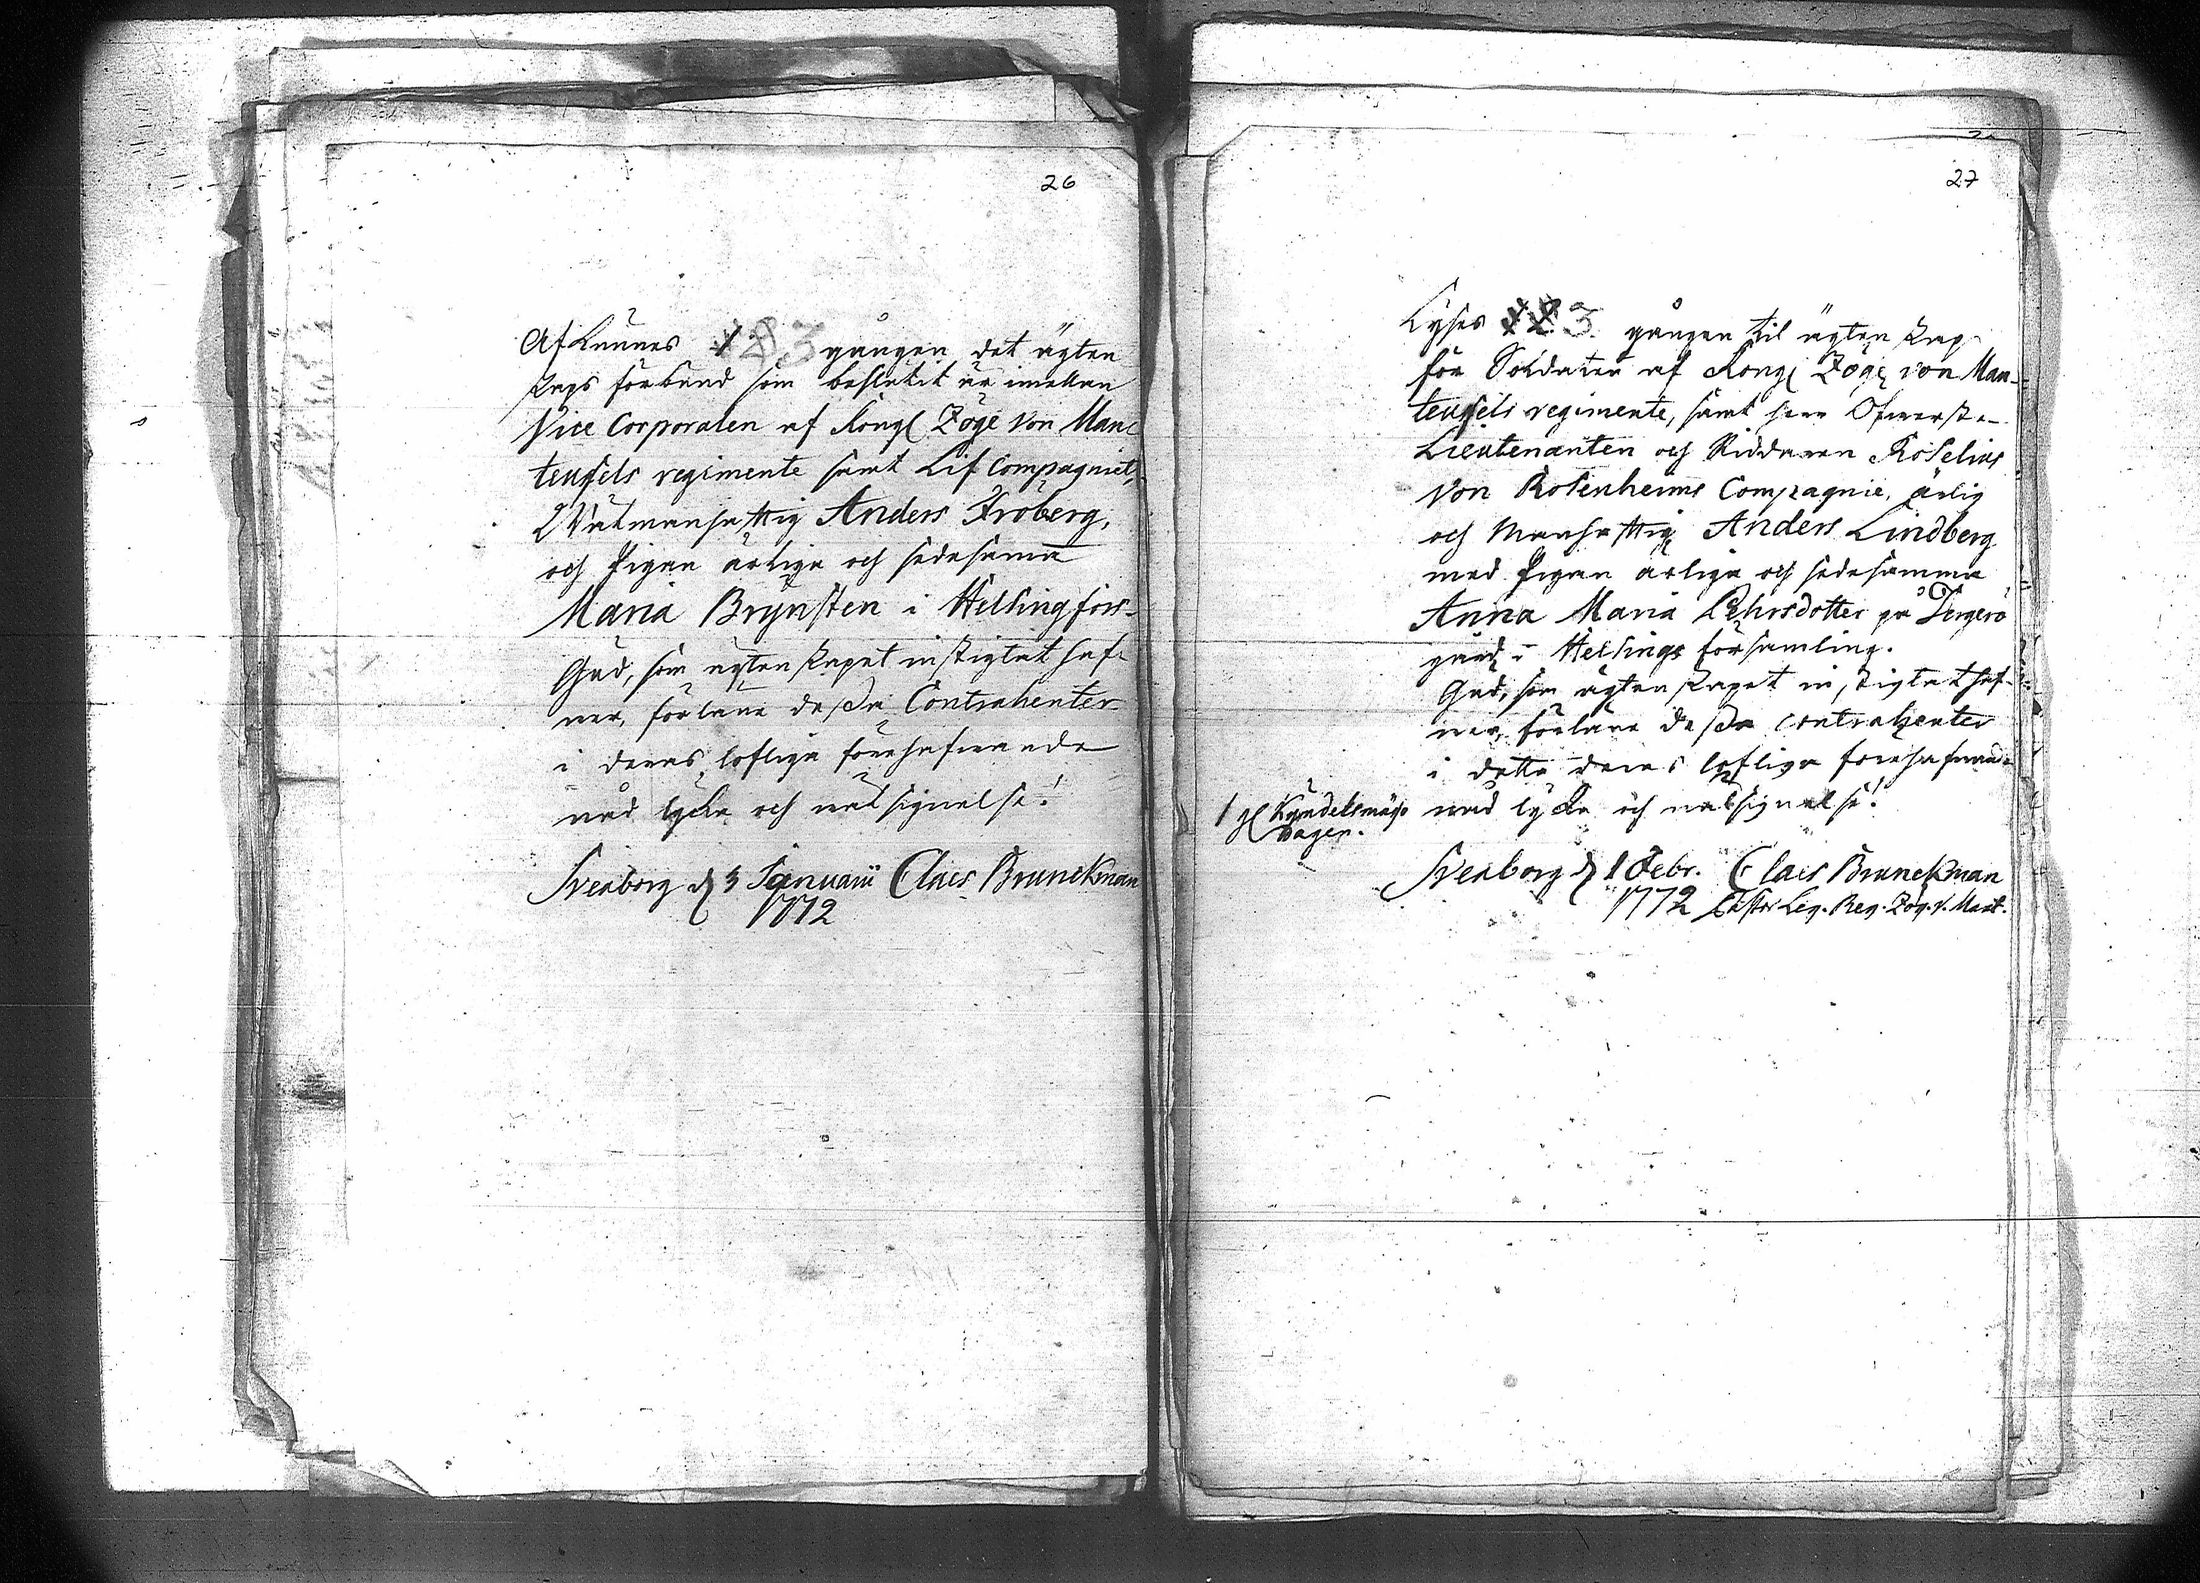 26
Afkunnes 1 2 3 gången det ägten
skaps förbund som beslutit är imellan
Vice Corporalen af Kongl Zöge von Man-
teufels regimente samt Lif Compagniet,
Wälmanhaftig Anders Fröberg,
och Pigan ärliga och sedesamma
Maria Brynsten i Helsingfors.
Gud, som ägtenskapet instigtat haf-
ver, förläne dessa Contrahenter
i deras lofliga förehafwande
nåd lycka och wälsignelse!
Sveaborg d 3 Januarii Claes Brunckman
1772
27
Lyses 1 2 3 gången til ägtenskap
för Soldaten af Kongl Zöge von Man-
teufels regimente, samt herr Öfwerste
Lieutenanten och Riddaren Roselius
von Rosenheims Compagnie, ärlig
och Manhaftig Anders Lindberg
med Pigan ärliga och sedesamma
Anna Maria Lehrsdotter på Tergero
gård i Helsinge församling.
Gud, som ägtenskapet instigtat haf-
ver, förläne dessa contrahenter
i detta deras lofliga förehafwande
nåd lycka och wälsignelse!
Kyndelsmässo
dagen.
Sveaborg d 1 Febr. Claes Brunckman
1772 Pastor Leg. Reg. Zög. v. Mant.